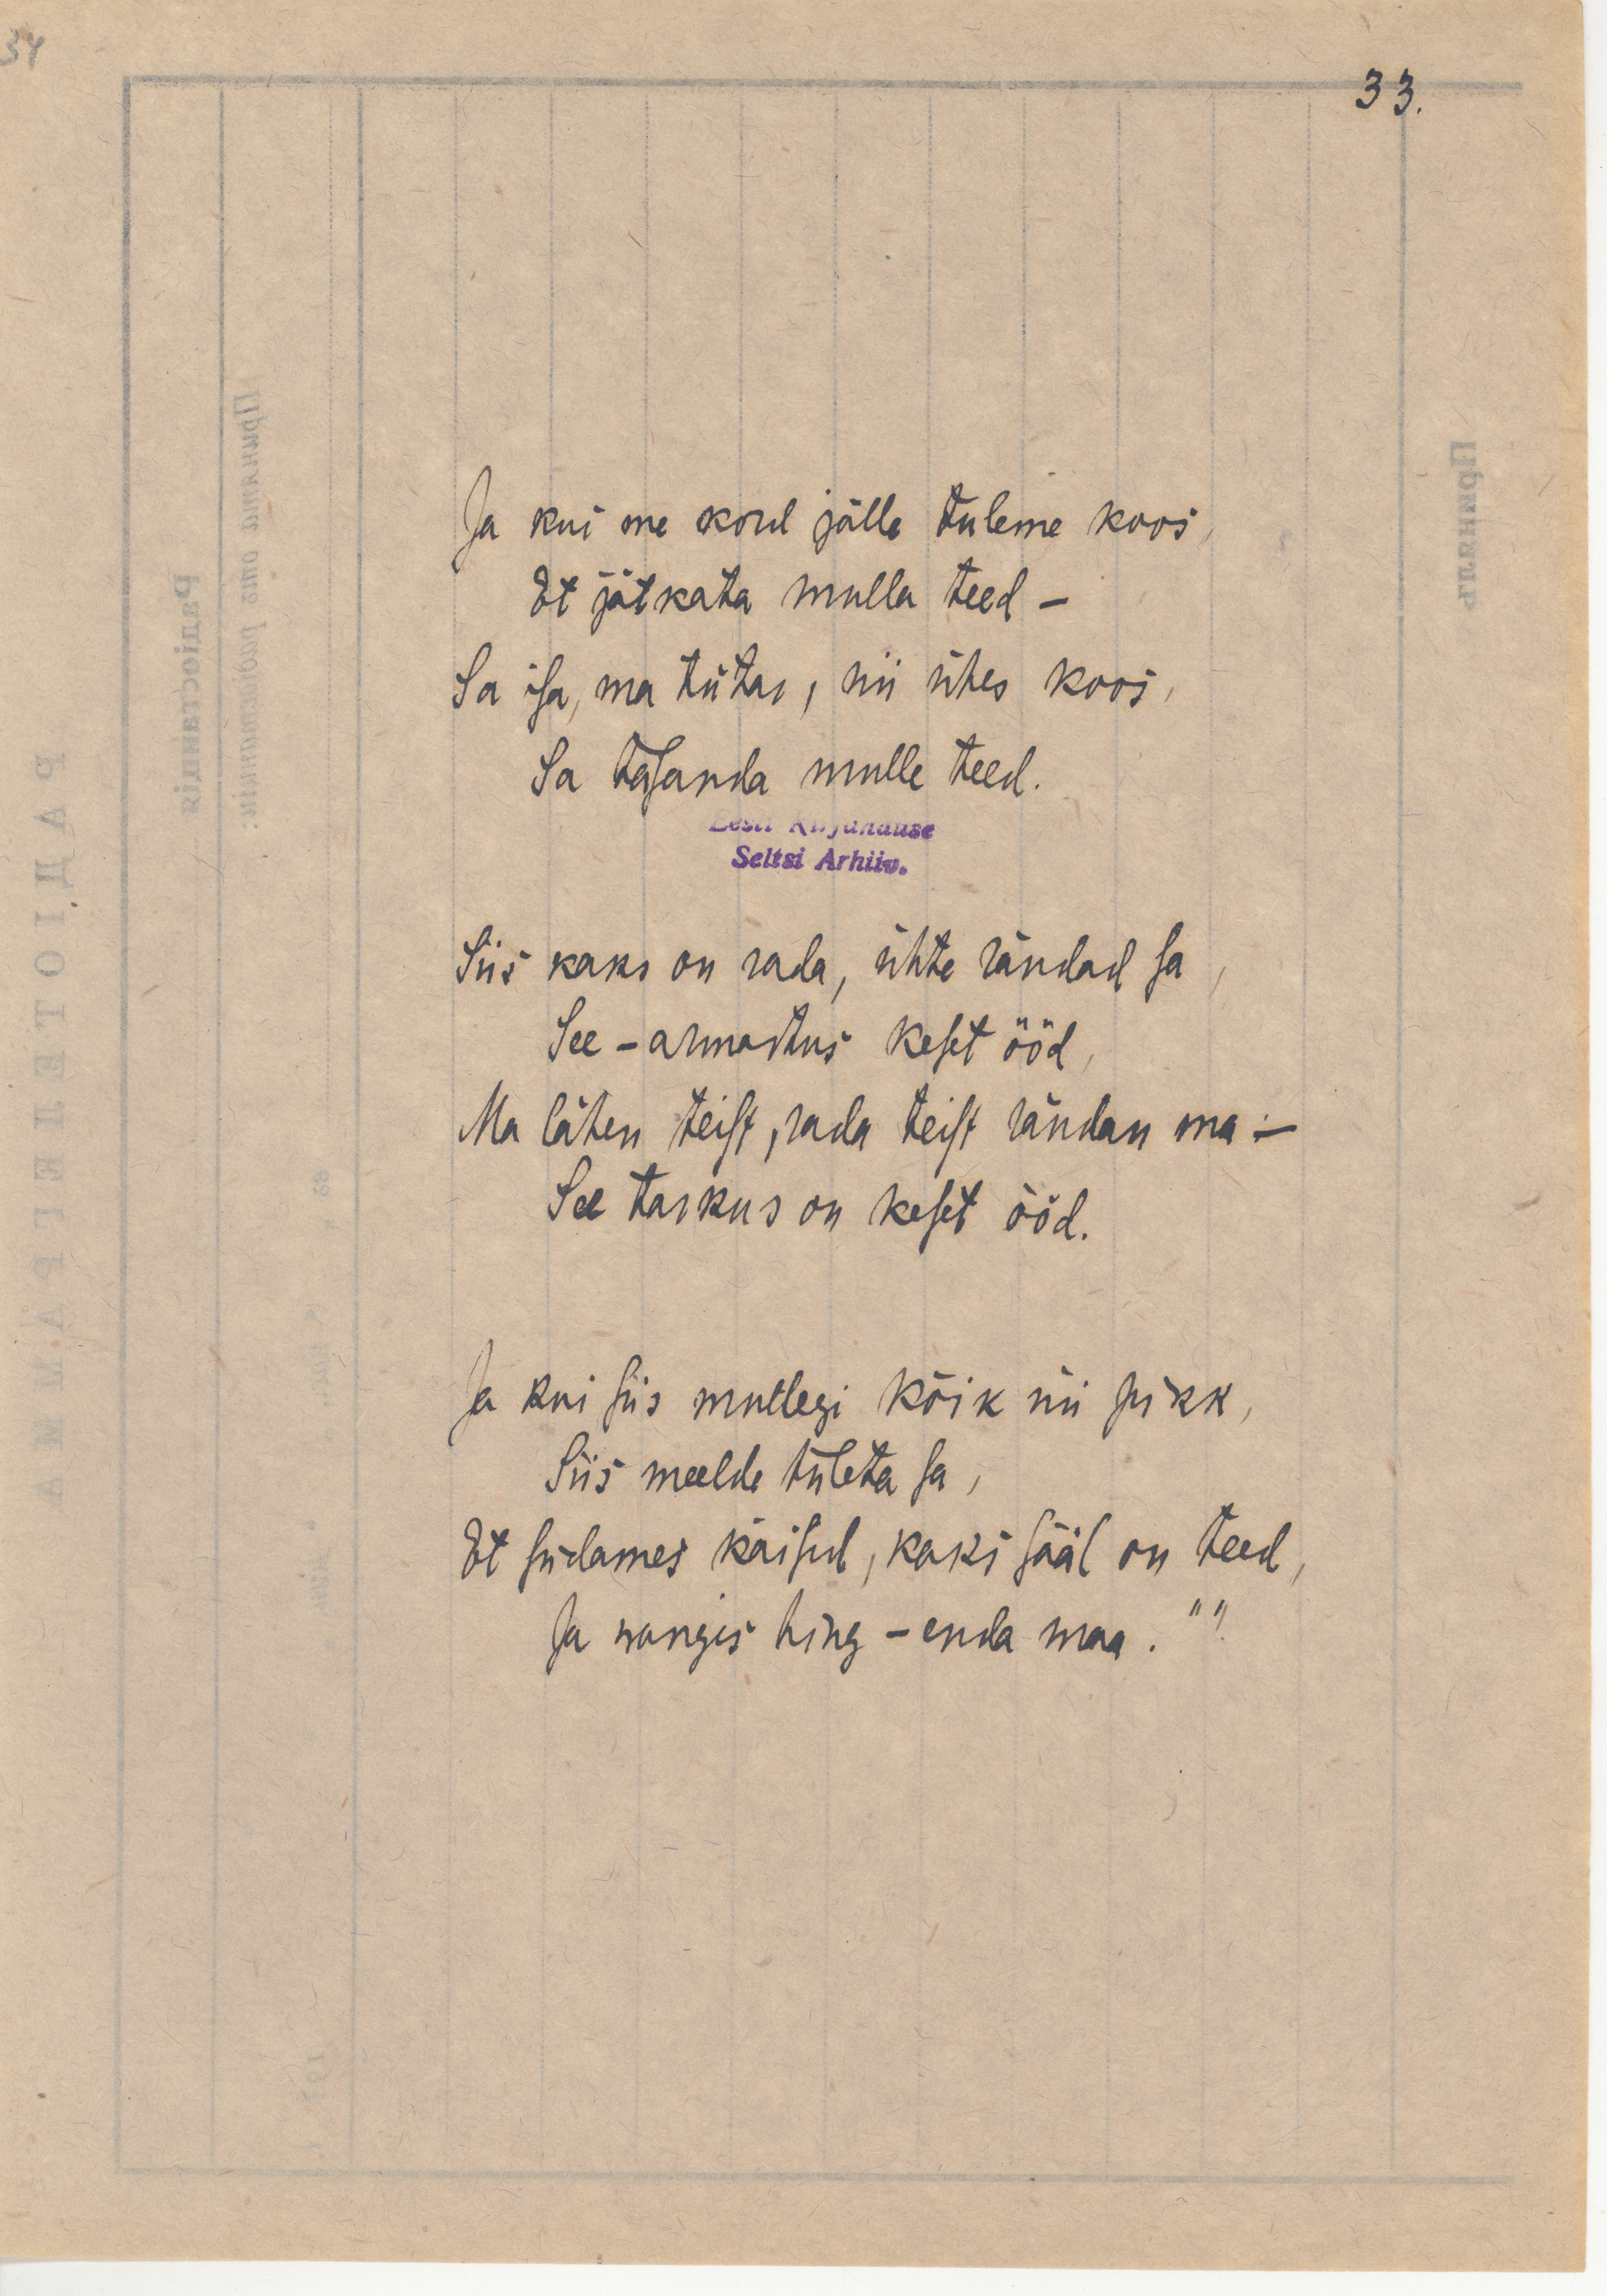 34
33.
Ja kui me kord jälle tuleme koos,
Et jätkata mulla teed –
Sa isa, ma tütar, nii ühes koos,
Sa tasanda mulle teed.
Eesti Kirjanduse
Seltsi Arhiiv.
Siis kaks on rada, ühte rändad sa,
See – armastus keset ööd,
Ma lähen teist, rada teist rändan ma –
See tarkus on keset ööd.
Ja kui siis mullegi kõik nii pikk,
Siis meelde tuleta sa,
Et südames käisid, kaks sääl on teed,
Ja wangis hing – enda maa. " "
РАДІОТЕЛЕГРАММА
Радіостанція
Принята отъ радіостанціи:
Принялъ